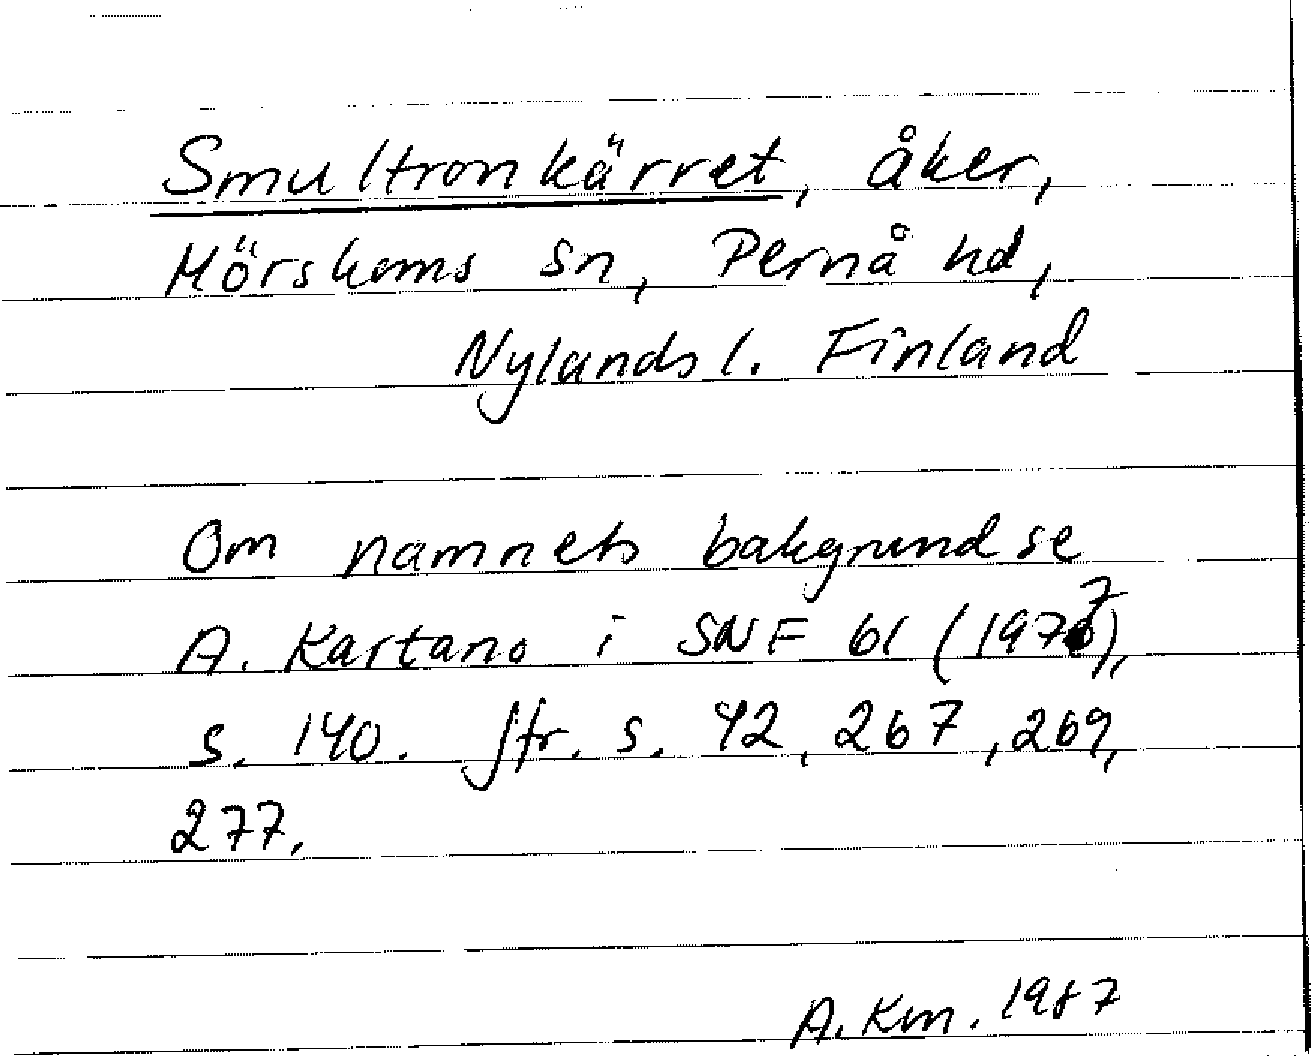 Smultronkärret, åker,
Mörskoms sn, Pernå hd,
Nylands l. Finland
Om namnets bakgrund se
A. Kartano i SNF 61 (1977),
s. 140. Jfr. s. 42, 267, 269,
277.
A. Km. 1987